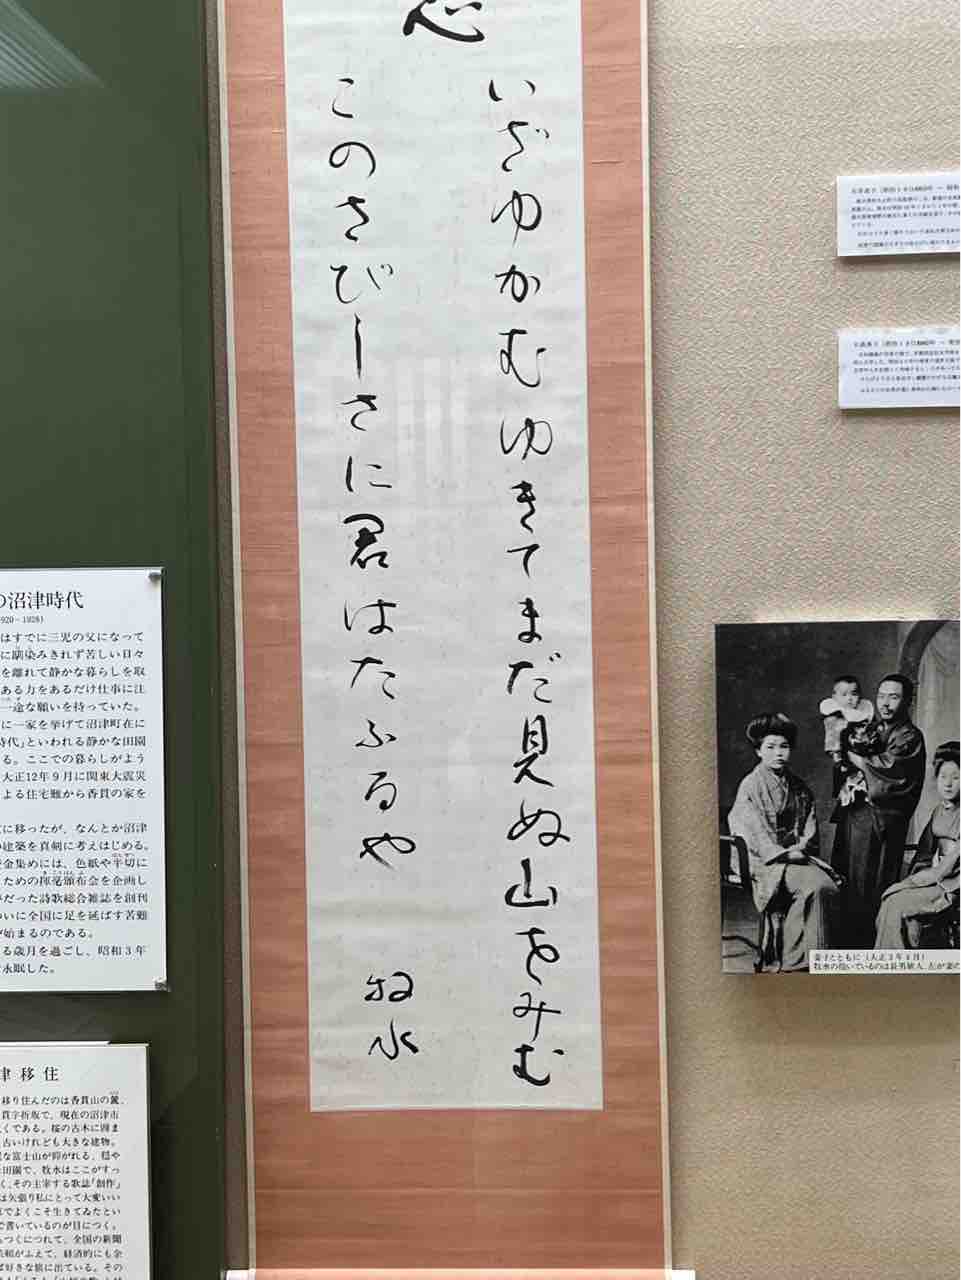 恋
いざゆかむゆきてまだ見ぬ山をみむ
このさびしさに君はたふるや
牧水
の沼津時代
はすでに三児の父になって
に馴染みきれず苦しい日々
を離れて静かな暮らしを取
ある力をあるだけ仕事に注
一途な願いを持っていた。
に一家を挙げて沼津町在に
時代」といわれる静かな田園
る。ここでの暮らしがよう
大正12年9月に関東大震災
よる住宅難から香貫の家を
に移ったが、なんとか沼津
の建築を真剣に考えはじめる。
金集めには、色紙や半切に
ための揮毫頒布会を企画し
だった詩歌総合雑誌を創刊
ついに全国に足を延ばす苦難
が始まるのである。
る歳月を過ごし、昭和3年
永眠した。
津移住
移り住んだのは香貫山の麓、
貫字折坂で、現在の沼津市
くである。桜の古木に囲ま
古いけれども大きな建物。
な富士山が仰がれる、穏や
田園で、牧水はここがすっ
く、その主宰する歌誌「創作」
は矢張り私にとって大変いい
でよくこそ生きてゐたとい
で書いているのが目につく。
つくにつれて、全国の新聞
依頼がふえて、経済的にも余
ば好きな旅に出ている。その
妻子とともに（大正3年4月）
牧水の抱いているのは長男旅人、左が妻の